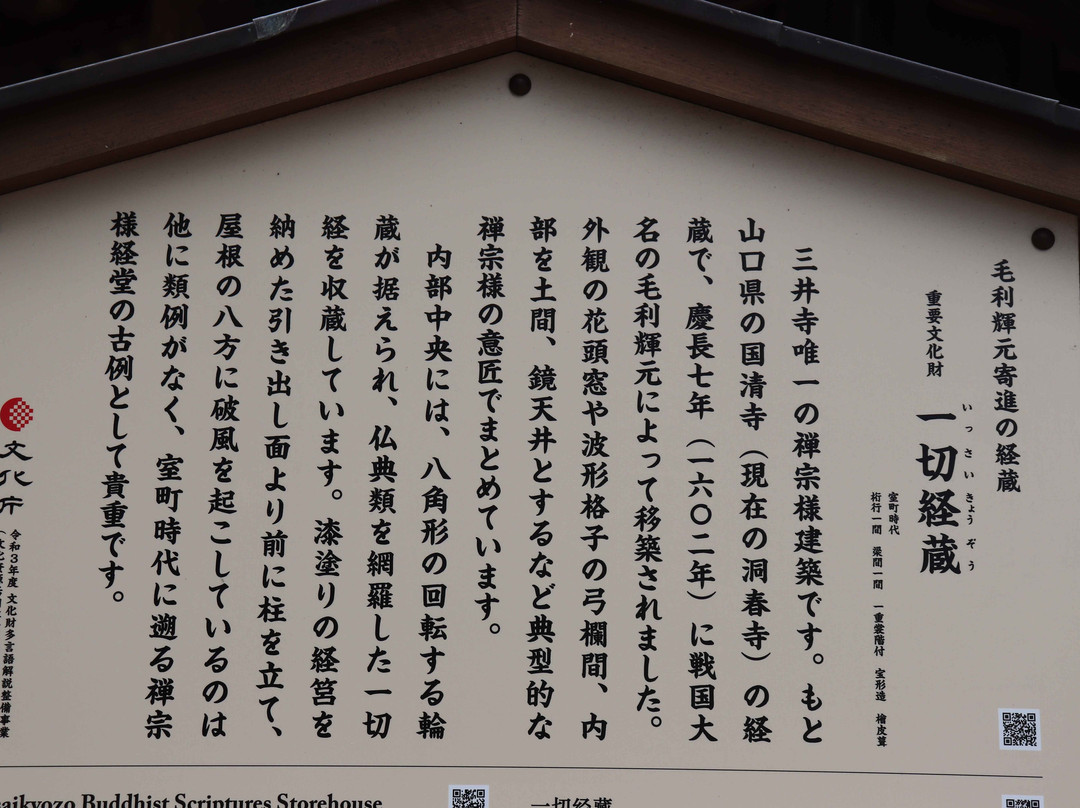 毛利輝元寄進の経蔵
重要文化財
一切経蔵
いっさいきょうぞう
室町時代
桁行一間 梁間一間 一重裳階付 宝形造 檜皮葺
三井寺唯一の禅宗様建築です。もと
山口県の国清寺（現在の洞春寺）の経
蔵で、慶長七年（一六〇二年）に戦国大
名の毛利輝元によって移築されました。
外観の花頭窓や波形格子の弓欄間、内
部を土間、鏡天井とするなど典型的な
禅宗様の意匠でまとめています。
内部中央には、八角形の回転する輪
蔵が据えられ、仏典類を網羅した一切
経を収蔵しています。漆塗りの経筥を
納めた引き出し面より前に柱を立て、
屋根の八方に破風を起こしているのは
他に類例がなく、室町時代に遡る禅宗
様経堂の古例として貴重です。
文化庁
令和3年度 文化財多言語解説整備事業
Buddhist Scriptures Storehouse
一切経蔵